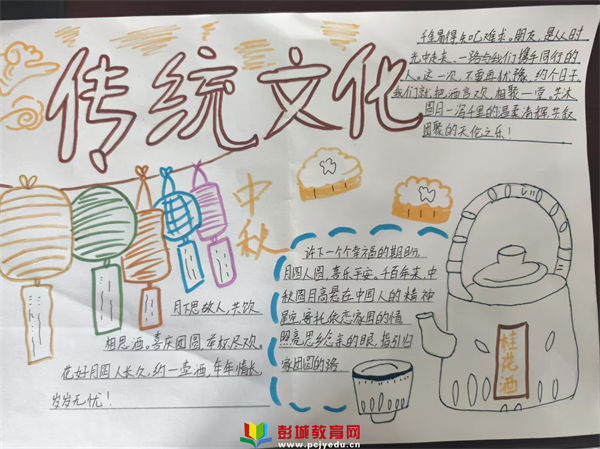 传统文化
千金易得知己难求。朋友,是从时
光中走来、一路与我们携手同行的
人。这一次,不要再犹豫,约个日子,
我们就把酒言欢,相聚一堂,共沐
圆月一泻千里的温柔清辉,共叙
团聚的天伦之乐!
中秋
许下一个个幸福的期盼,
月圆人圆,喜乐平安。千百年来,中
秋圆月高悬在中国人的精神
星空,寄托依恋家园的情
照亮思乡念亲的眼,指引归
家团圆的路
月下思故人,共饮
相思酒。喜庆团圆,举杯尽欢。
花好月圆人长久,约一壶酒,年年情长,
岁岁无忧!
桂花酒
彭城教育网
www.pcjyedu.cn